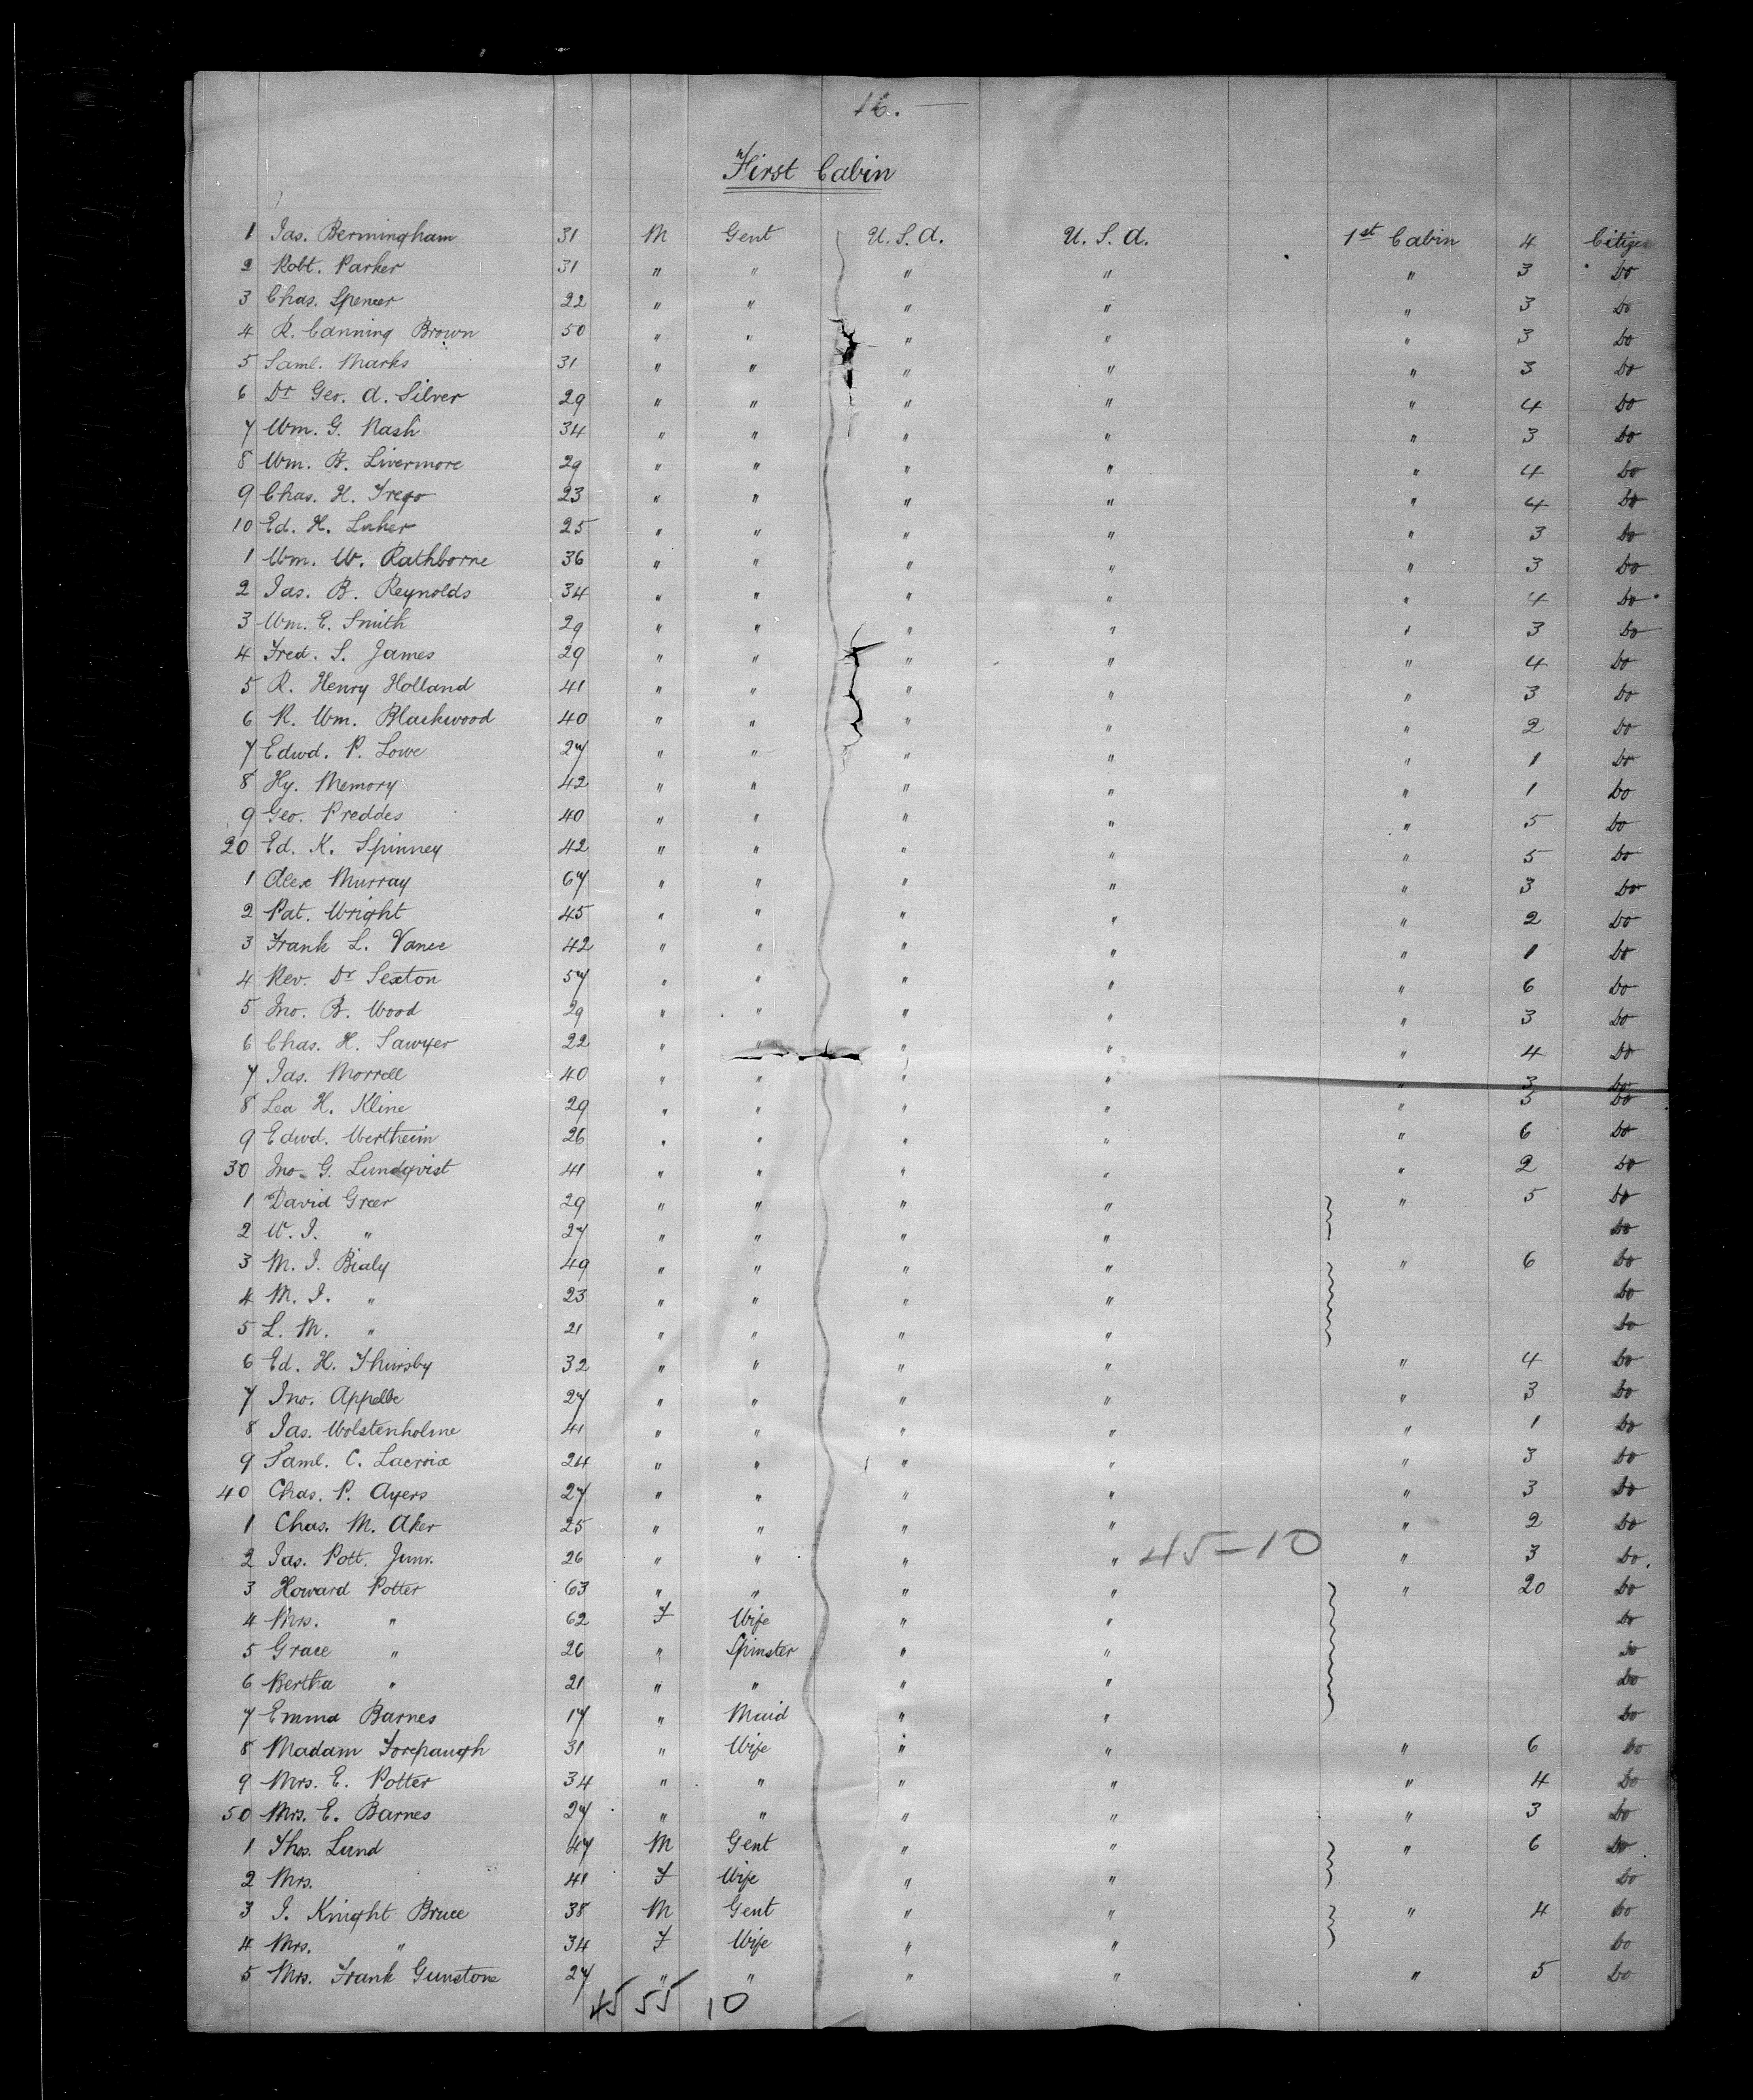 16.
First Cabin
1 Jas. Bermingham 31 M Gent U.S.A. U.S.A. 1st Cabin 4 Citizen
2 Robt. Parker 31 " " " " " 3 Do
3 Chas. Spencer 22 " " " " " 3 Do
4 R. Canning Brown 50 " " " " " 3 Do
5 Saml. Marks 31 " " " " " 3 Do
6 Dr Geo. A. Silver 29 " " " " " 4 Do
7 Wm. G. Nash 34 " " " " " 3 Do
8 Wm. B. Livermore 29 " " " " " 4 Do
9 Chas. H. Trego 23 " " " " " 4 Do
10 Ed. H. Laher 25 " " " " " 3 Do
1 Wm. W. Rathborne 36 " " " " " 3 Do
2 Jas. B. Reynolds 34 " " " " " 4 Do
3 Wm. E. Smith 29 " " " " " 3 Do
4 Fred. S. James 29 " " " " " 4 Do
5 R. Henry Holland 41 " " " " " 3 Do
6 R. Wm. Blackwood 40 " " " " " 2 Do
7 Edwd. P. Lowe 27 " " " " " 1 Do
8 Hy. Memory 42 " " " " " 1 Do
9 Geo. Preddes 40 " " " " " 5 Do
20 Ed. K. Spinney 42 " " " " " 5 Do
1 Alex Murray 67 " " " " " 3 Do
2 Pat. Wright 45 " " " " " 2 Do
3 Frank L. Vance 42 " " " " " 1 Do
4 Rev. Dr Sexton 57 " " " " " 6 Do
5 Jno. B. Wood 29 " " " " " 3 Do
6 Chas. H. Sawyer 22 " " " " " 4 Do
7 Jas. Morrell 40 " " " " " 3 Do
8 Lea H. Kline 29 " " " " " 3 Do
9 Edwd. Wertheim 26 " " " " " 6 Do
30 Jno. G. Lundqvist 41 " " " " " 2 Do
1 David Greer 29 " " " " " 5 Do
2 W. J. " 27 " " " " Do
3 M. J. Bialy 49 " " " " " 6 Do
4 M. J. " 23 " " " " Do
5 L. M. " 21 " " " " Do
6 Ed. H. Thursby 32 " " " " " 4 Do
7 Jno. Appelbe 27 " " " " " 3 Do
8 Jas. Wolstenholme 41 " " " " " 1 Do
9 Saml. C. Lacroix 24 " " " " " 3 Do
40 Chas. P. Ayers 27 " " " " " 3 Do
1 Chas. M. Aker 25 " " " " " 2 Do
2 Jas. Pott. Junr. 26 " " " " 45-10 " 3 Do.
3 Howard Potter 63 " " " " " 20 Do
4 Mrs. " 62 F Wife " " Do
5 Grace " 26 " Spinster " " Do
6 Bertha " 21 " " " " Do
7 Emma Barnes 17 " Maid " " Do
8 Madam Forepaugh 31 " Wife " " " 6 Do
9 Mrs. E. Potter 34 " " " " " 4 Do
50 Mrs. E. Barnes 27 " " " " " 3 Do
1 Thos. Lund 47 M Gent " " " 6 Do
2 Mrs. 41 F Wife " " Do
3 J. Knight Bruce 38 M Gent " " " 4 Do
4 Mrs. " 34 F Wife " " Do
5 Mrs. Frank Gunstone 27 " " " " " 5 Do
45 55 10